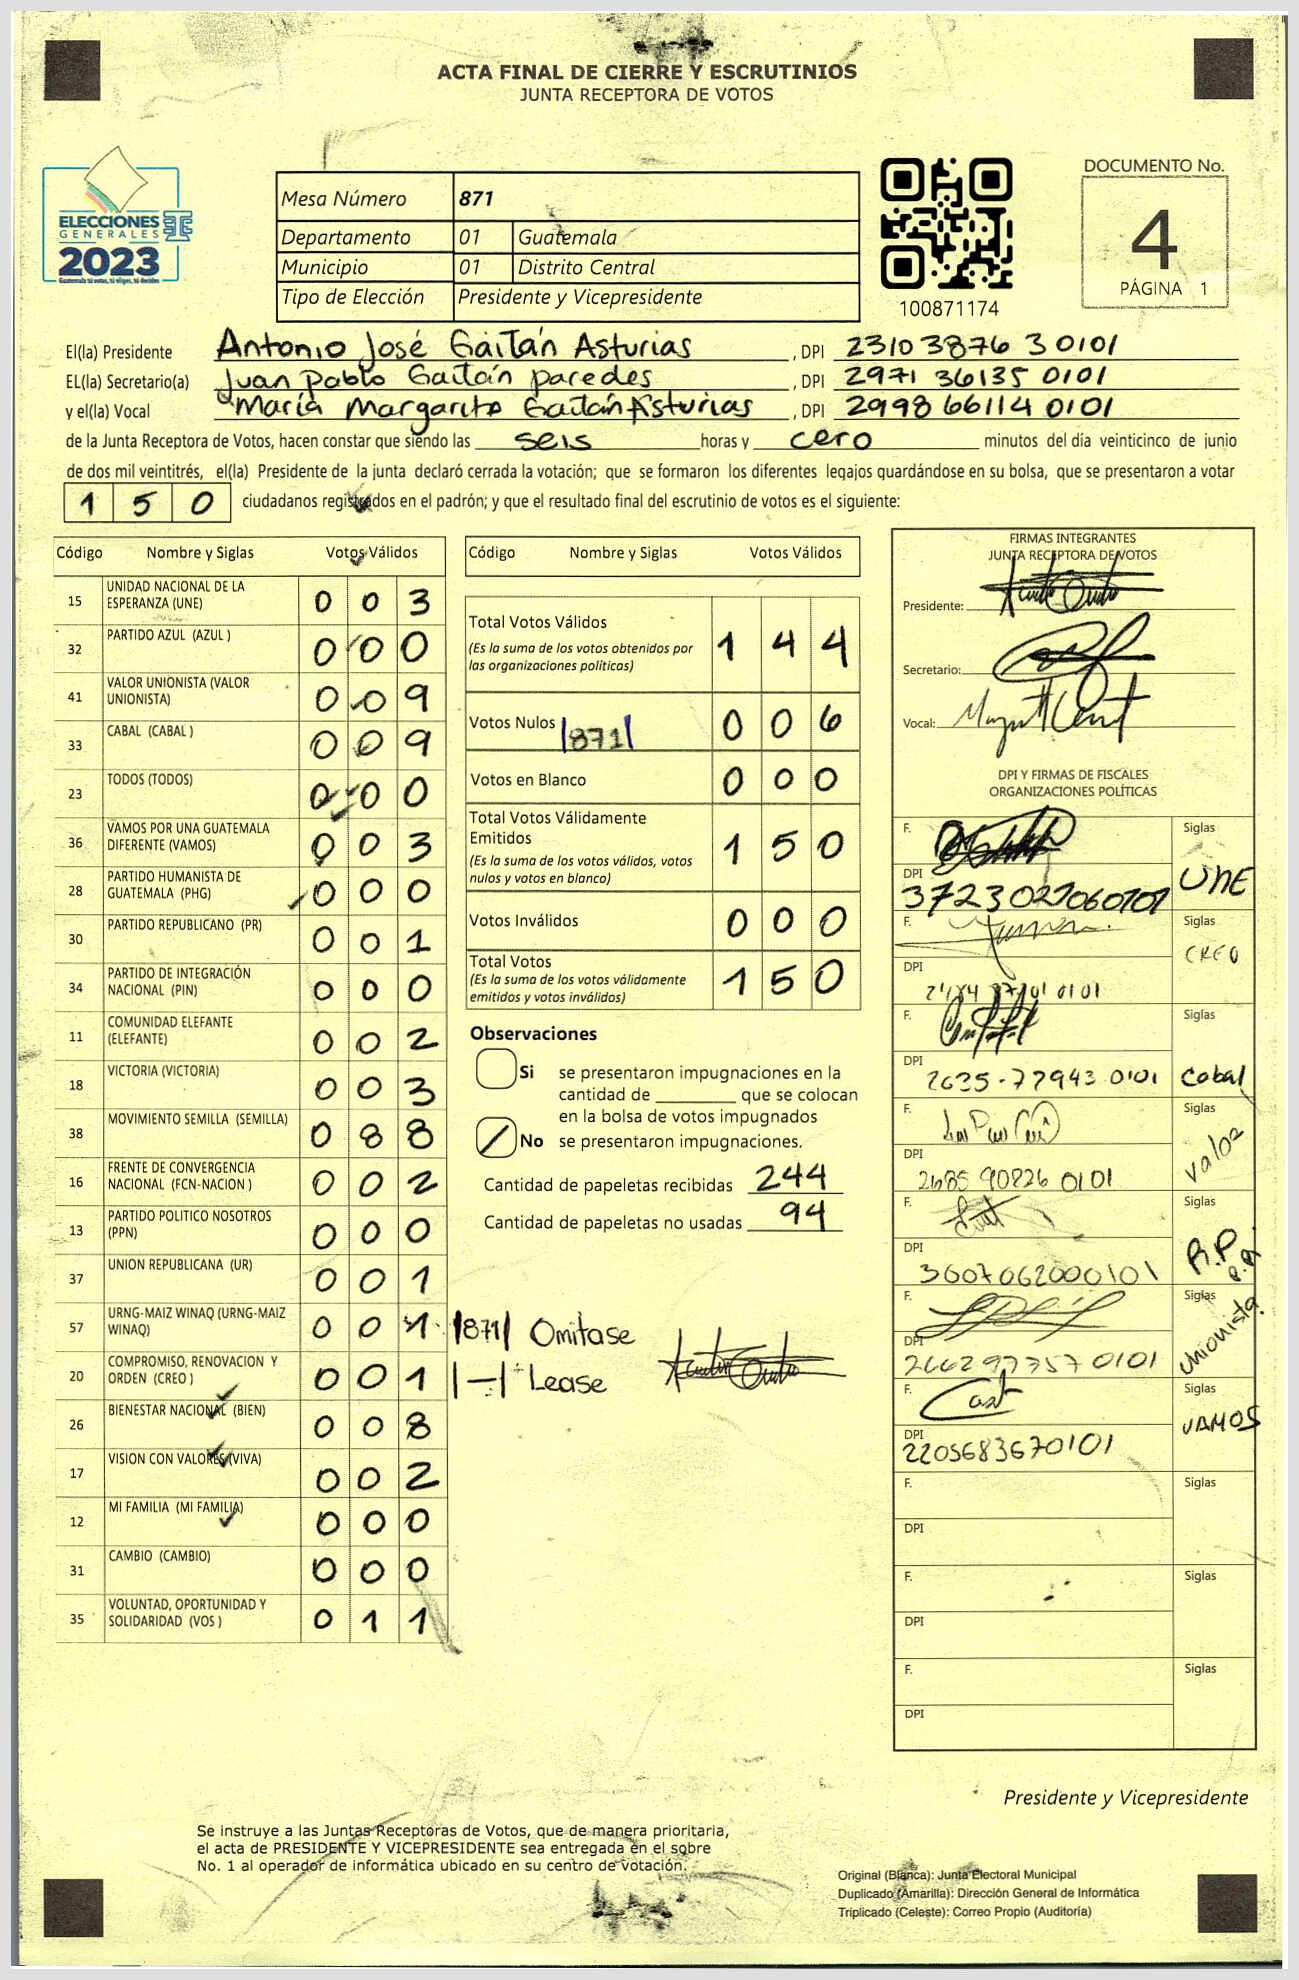 ACTA FINAL DE CIERRE Y ESCRUTINIOS
JUNTA RECEPTORA DE VOTOS
ELECCIONES
GENERALES
2023
Guatemala tú votas, tú eliges, tú decides
Mesa Número 871
Departamento 01 Guatemala
Municipio 01 Distrito Central
Tipo de Elección Presidente y Vicepresidente
100871174
DOCUMENTO No.
4
PÁGINA 1
El(la) Presidente Antonio José Gaitán Asturias, DPI 23103876 3 0101
EL(la) Secretario(a) Juan Pablo Gaitán Paredes, DPI 2971 36135 0101
y el(la) Vocal María Margarita Gaitán Asturias, DPI 2998 66114 0101
de la Junta Receptora de Votos, hacen constar que siendo las seis horas y cero minutos del día veinticinco de junio
de dos mil veintitrés, el(la) Presidente de la junta declaró cerrada la votación; que se formaron los diferentes legajos guardándose en su bolsa, que se presentaron a votar
150 ciudadanos registrados en el padrón; y que el resultado final del escrutinio de votos es el siguiente:
Código Nombre y Siglas Votos Válidos
15 UNIDAD NACIONAL DE LA ESPERANZA (UNE) 0 0 3
32 PARTIDO AZUL (AZUL ) 0 0 0
41 VALOR UNIONISTA (VALOR UNIONISTA) 0 0 9
33 CABAL (CABAL ) 0 0 9
23 TODOS (TODOS) 0 0 0
36 VAMOS POR UNA GUATEMALA DIFERENTE (VAMOS) 0 0 3
28 PARTIDO HUMANISTA DE GUATEMALA (PHG) 0 0 0
30 PARTIDO REPUBLICANO (PR) 0 0 1
34 PARTIDO DE INTEGRACIÓN NACIONAL (PIN) 0 0 0
11 COMUNIDAD ELEFANTE (ELEFANTE) 0 0 2
18 VICTORIA (VICTORIA) 0 0 3
38 MOVIMIENTO SEMILLA (SEMILLA) 0 8 8
16 FRENTE DE CONVERGENCIA NACIONAL (FCN-NACION ) 0 0 2
13 PARTIDO POLITICO NOSOTROS (PPN) 0 0 0
37 UNION REPUBLICANA (UR) 0 0 1
57 URNG-MAIZ WINAQ (URNG-MAIZ WINAQ) 0 0 1
20 COMPROMISO, RENOVACION Y ORDEN (CREO ) 0 0 1
26 BIENESTAR NACIONAL (BIEN) 0 0 8
17 VISION CON VALORES (VIVA) 0 0 2
12 MI FAMILIA (MI FAMILIA) 0 0 0
31 CAMBIO (CAMBIO) 0 0 0
35 VOLUNTAD, OPORTUNIDAD Y SOLIDARIDAD (VOS ) 0 1 1
Código Nombre y Siglas Votos Válidos
Total Votos Válidos 1 4 4
(Es la suma de los votos obtenidos por
las organizaciones políticas)
Votos Nulos |871| 0 0 6
Votos en Blanco 0 0 0
Total Votos Válidamente
Emitidos 1 5 0
(Es la suma de los votos válidos, votos
nulos y votos en blanco)
Votos Inválidos 0 0 0
Total Votos 1 5 0
(Es la suma de los votos válidamente
emitidos y votos inválidos)
Observaciones
Si se presentaron impugnaciones en la
cantidad de ________ que se colocan
en la bolsa de votos impugnados
No se presentaron impugnaciones.
Cantidad de papeletas recibidas 244
Cantidad de papeletas no usadas 94
|871| Omitase
|—| Lease
FIRMAS INTEGRANTES
JUNTA RECEPTORA DE VOTOS
Presidente:
Secretario:
Vocal:
DPI Y FIRMAS DE FISCALES
ORGANIZACIONES POLÍTICAS
F. Siglas
DPI UNE
F. Siglas
DPI CREO
F. Siglas
DPI 2635-77943 0101 Cabal
F. Siglas
DPI 2685 90826 0101 Valor
F. Siglas
DPI 3607062000101 R.P.
F. Siglas
DPI 2662977570101 Unionista
F. Siglas
DPI 2205683670101 VAMOS
F. Siglas
DPI
F. Siglas
DPI
F. Siglas
DPI
Presidente y Vicepresidente
Se instruye a las Juntas Receptoras de Votos, que de manera prioritaria,
el acta de PRESIDENTE Y VICEPRESIDENTE sea entregada en el sobre
No. 1 al operador de informática ubicado en su centro de votación.
Original (Blanca): Junta Electoral Municipal
Duplicado (Amarilla): Dirección General de Informática
Triplicado (Celeste): Correo Propio (Auditoría)